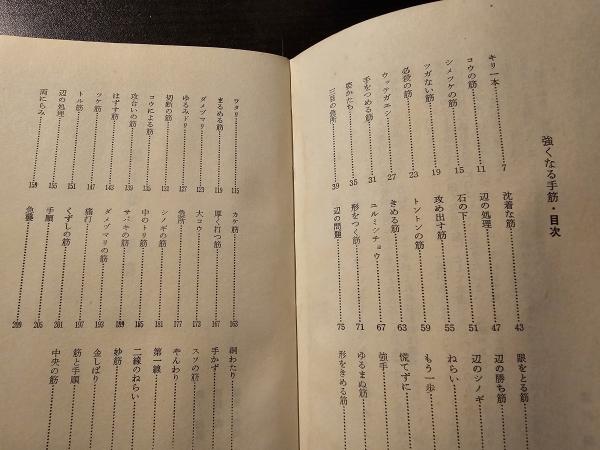 強くなる手筋・目次
キリ一本 7
コウの筋 11
シメツケの筋 15
ツガない筋 19
必殺の筋 23
ウッテガエシ 27
手をつめる筋 31
姿かたち 35
三目の急所 39
沈着な筋 43
辺の処理 47
石の下 51
攻め出す筋 55
トントンの筋 59
きめる筋 63
ユルミシチョウ 67
形をつく筋 71
辺の問題 75
眼をとる筋
辺の勝ち筋
辺のシノギ
ねらい
もう一歩
慌てずに
強手
ゆるまぬ筋
形をきめる筋
ワタリ 115
まるめる筋 119
ダメヅマリ 123
ゆるみドリ 127
切断の筋 131
コウによる筋 135
攻合いの筋 139
はずす筋 143
ツケ筋 147
トル筋 151
辺の処理 155
両にらみ 159
カケ筋 163
厚く打つ筋 167
大コウ 173
急所 177
シノギの筋 181
中のトリ筋 185
サバキの筋 189
ダメヅマリの筋 193
痛打 197
くずしの筋 201
手順 205
急襲 209
綱わたり
手かず
スソの筋
やんわり
第一線
二線のねらい
妙筋
金しばり
筋と手順
中央の筋